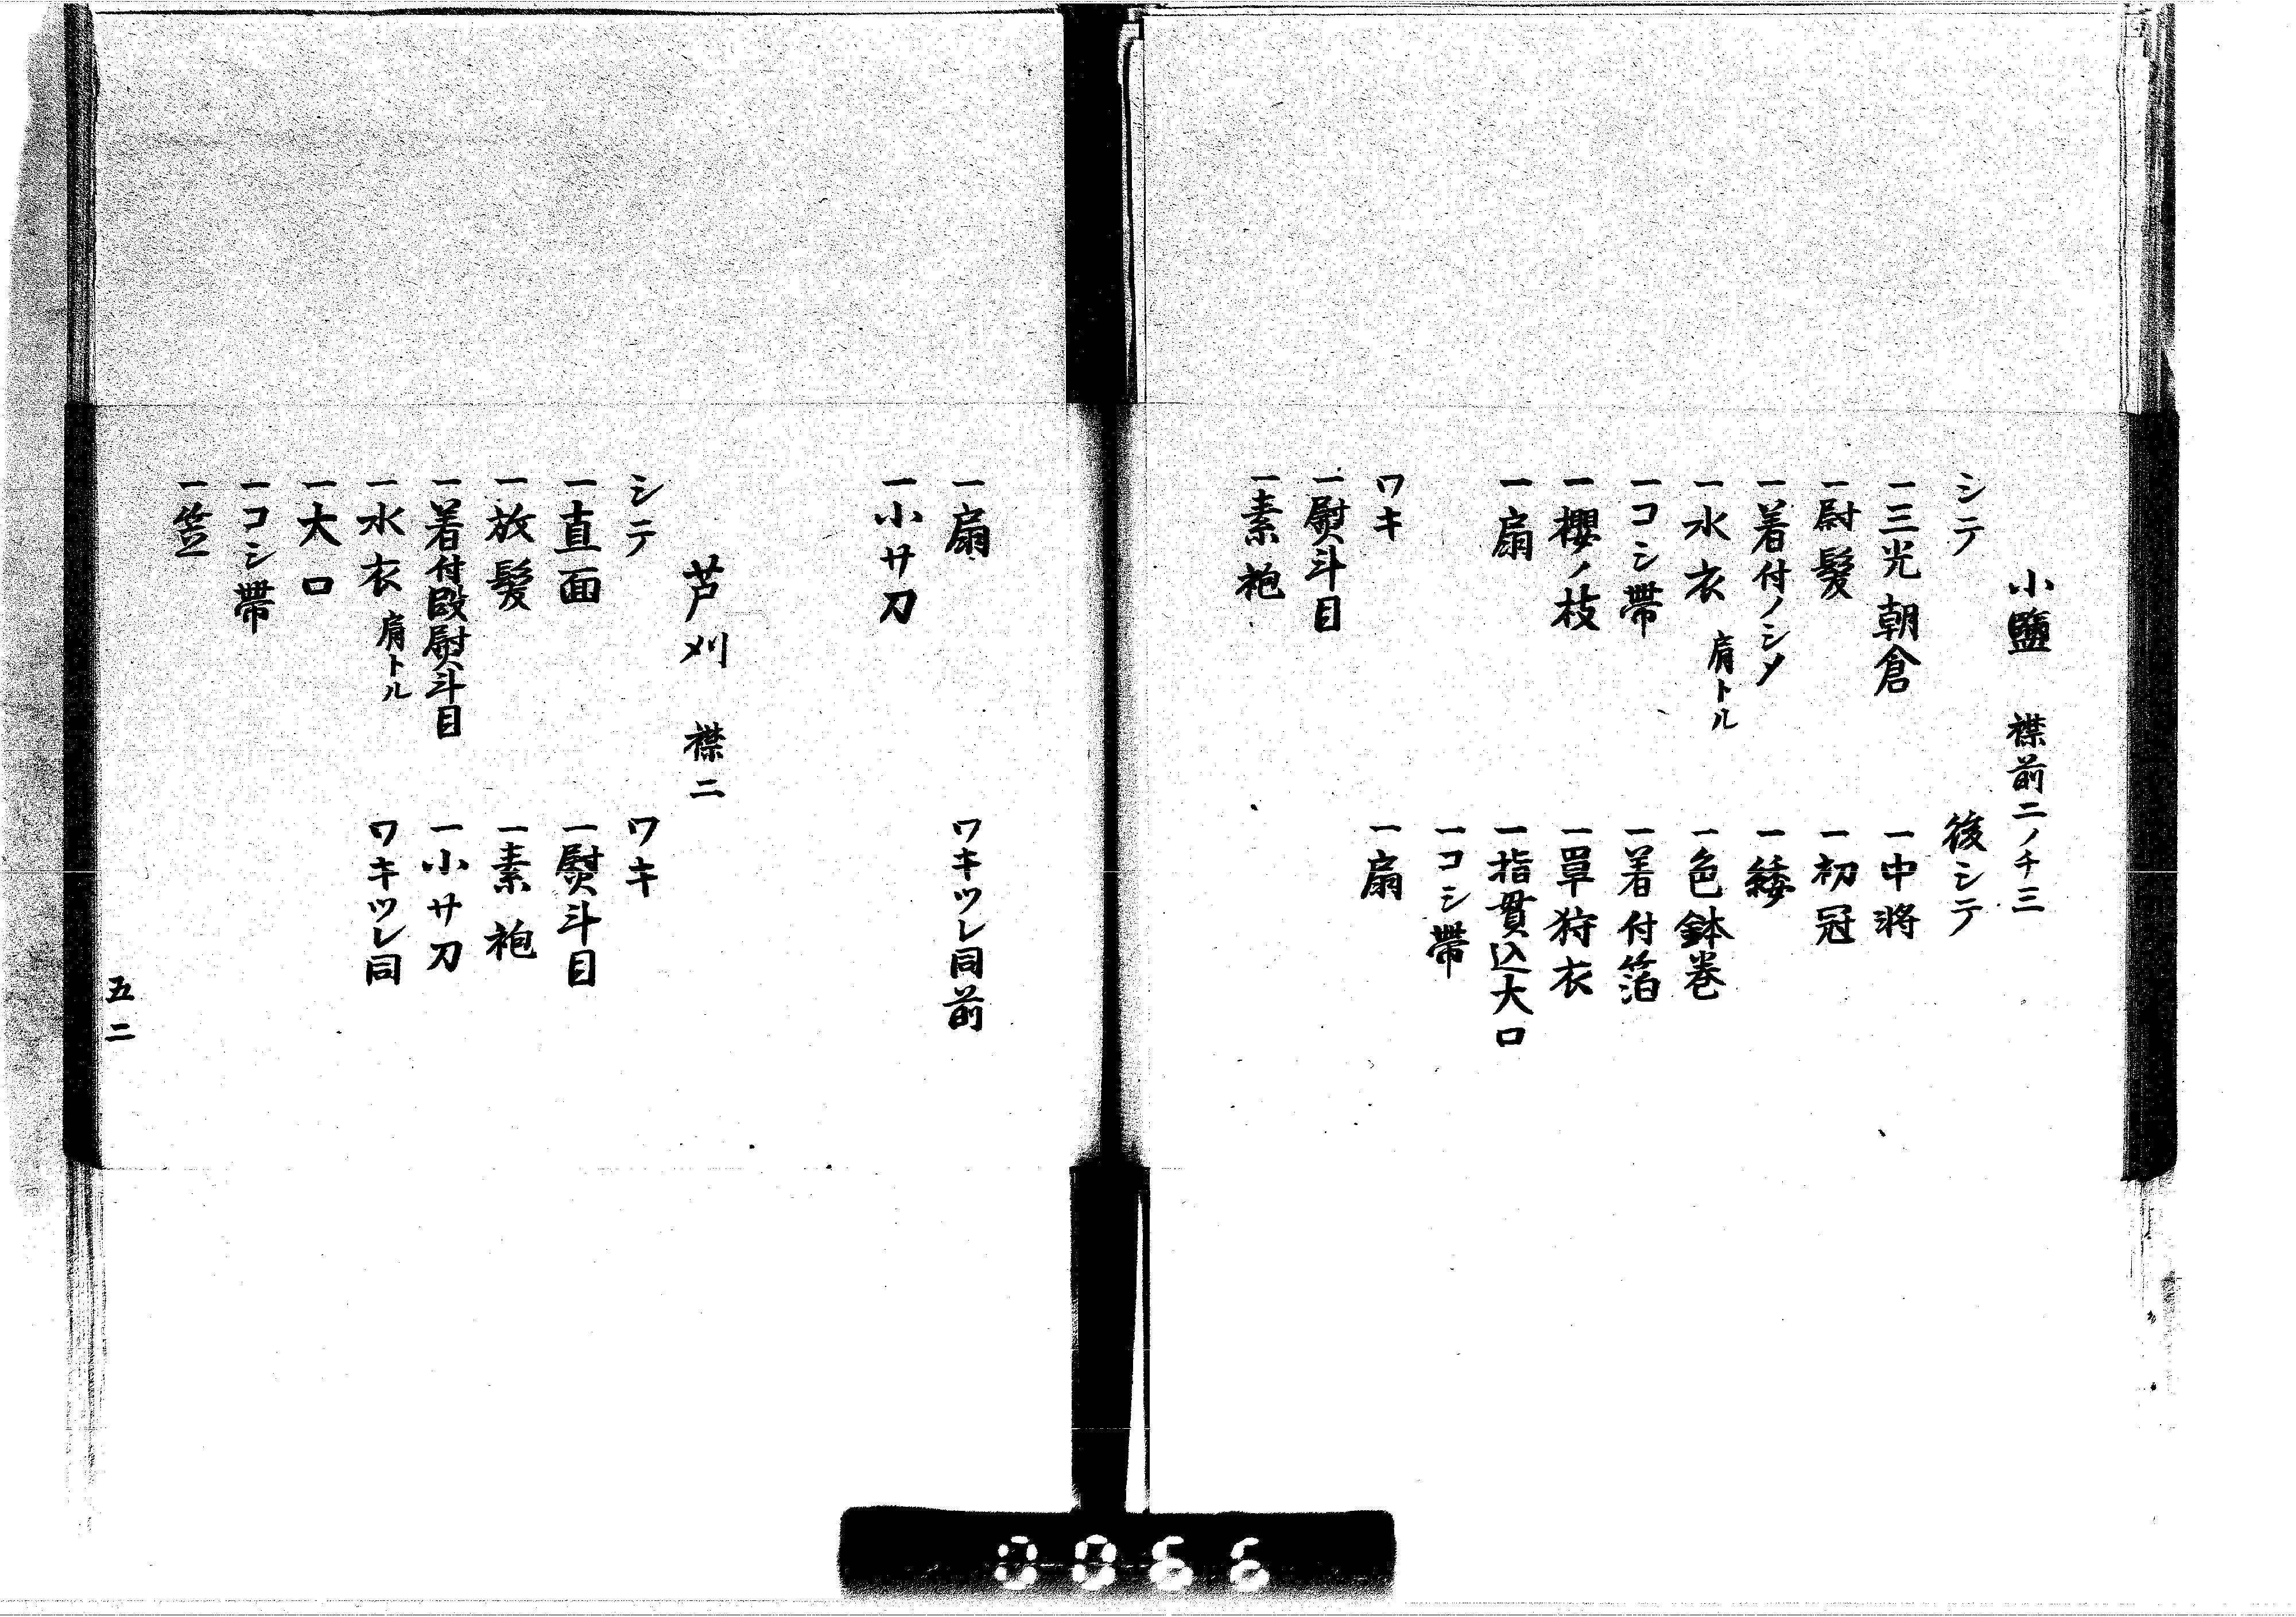 小鹽　襟前二ノチ三
シテ
一三光朝倉
一尉髪
一着付ノシメ
一水衣　肩トル
一コシ帯
一櫻ノ枝
一扇
後シテ
一中将
一初冠
一緌
一色鉢巻
一着付箔
一單狩衣
一指貫込大口
一コシ帯
一扇
ワキ
一熨斗目
一素袍
一扇
一小サ刀
ワキツレ同前
芦刈　襟二
シテ
一直面
一放髪
一着付段熨斗目
一水衣　肩トル
一大口
一コシ帯
一笠
ワキ
一熨斗目
一素袍
一小サ刀
ワキツレ同
五二
0066